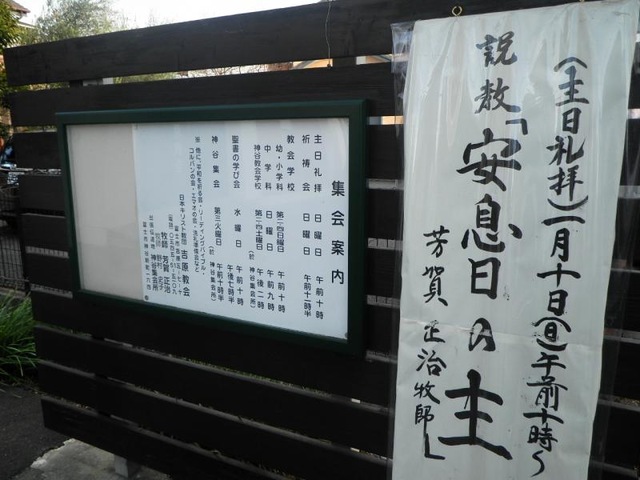 (主日礼拝)一月十日(日)午前十時〜
説教「安息日の主」
芳賀正治牧師
集会案内
主日礼拝 日曜日 午前十時
祈祷会 日曜日 午前十一時半
教会学校
幼・小学科 日曜日 午前九時
中学科
神谷教会学校 第二・四土曜日 午後二時
(於 神谷集会所)
聖書の学び会 水曜日 午前十時
午後七時半
神谷集会 第三火曜日 午前十時半
(於 神谷集会所)
※他に、平和を祈る会・リーディングバイブル・
日本キリスト教団 吉原教会
牧師 芳賀正治
神谷集会所